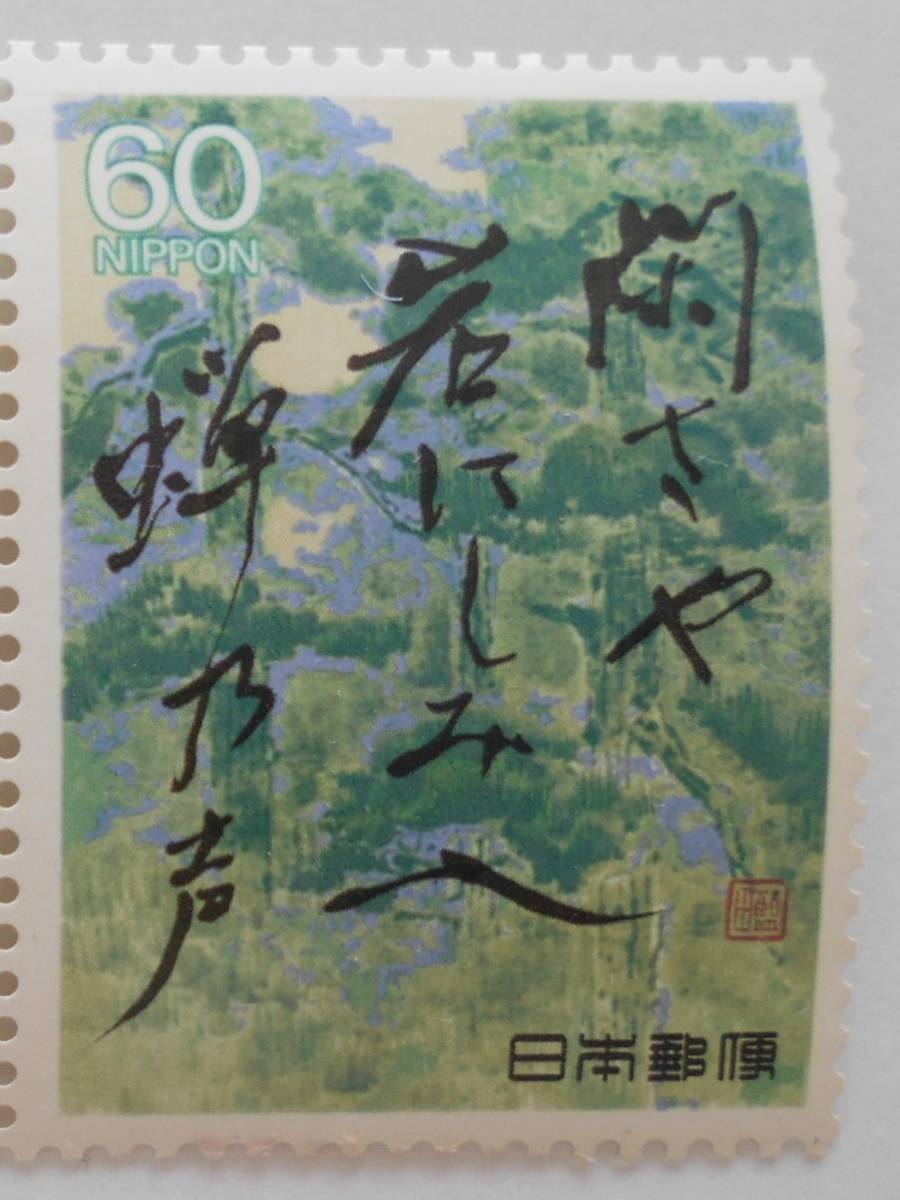 60
NIPPON
閑さや
岩にしみ入
蝉乃声
日本郵便